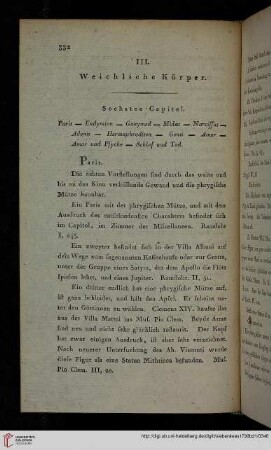 332
III.
Weichliche Körper.
Sechstes Capitel.
Paris — Endymion — Ganymed — Midas — Narcissus —
Adonis — Hermaphroditen — Genii — Amor —
Amor und Psyche — Schlaf und Tod.
Paris.
Die ächten Vorstellungen sind durch das weite und
bis an das Kinn verhüllende Gewand und die phrygische
Mütze kennbar.
Ein Paris mit der phrygischen Mütze, und mit dem
Ausdruck des Charakters befindet sich
im Capitol, im Zimmer der Miscellaneen. Ramdohr
I, 245.
Ein zweyter befindet sich in der Villa Albani auf
dem Wege vom sogenannten Kaffeehause oder zur Gente,
unter der Gruppe eines Satyrs, den dem Apollo die Flöte
spielen lehrt, und eines Jupiter. Ramdohr II, 51.
Ein dritter endlich hat eine phrygische Mütze auf,
ist ganz bekleidet, und hält den Apfel. Er scheint un-
ter den Göttinnen zu wählen. Clemens XIV. brachte ihn
aus der Villa Mattei ins Mus. Pio Clem. Beyde Arme
sind neu und nicht sehr glücklich restaurirt. Der Kopf
hat zwar einigen Ausdruck, ist aber sehr verstümmelt.
Nach neuerer Untersuchung des Ab. Visconti wurde
diese Figur als eine Statue Mithricea befunden. Mus.
Pio Clem. III, 20.
UNIVERSITÄTS-
BIBLIOTHEK
HEIDELBERG